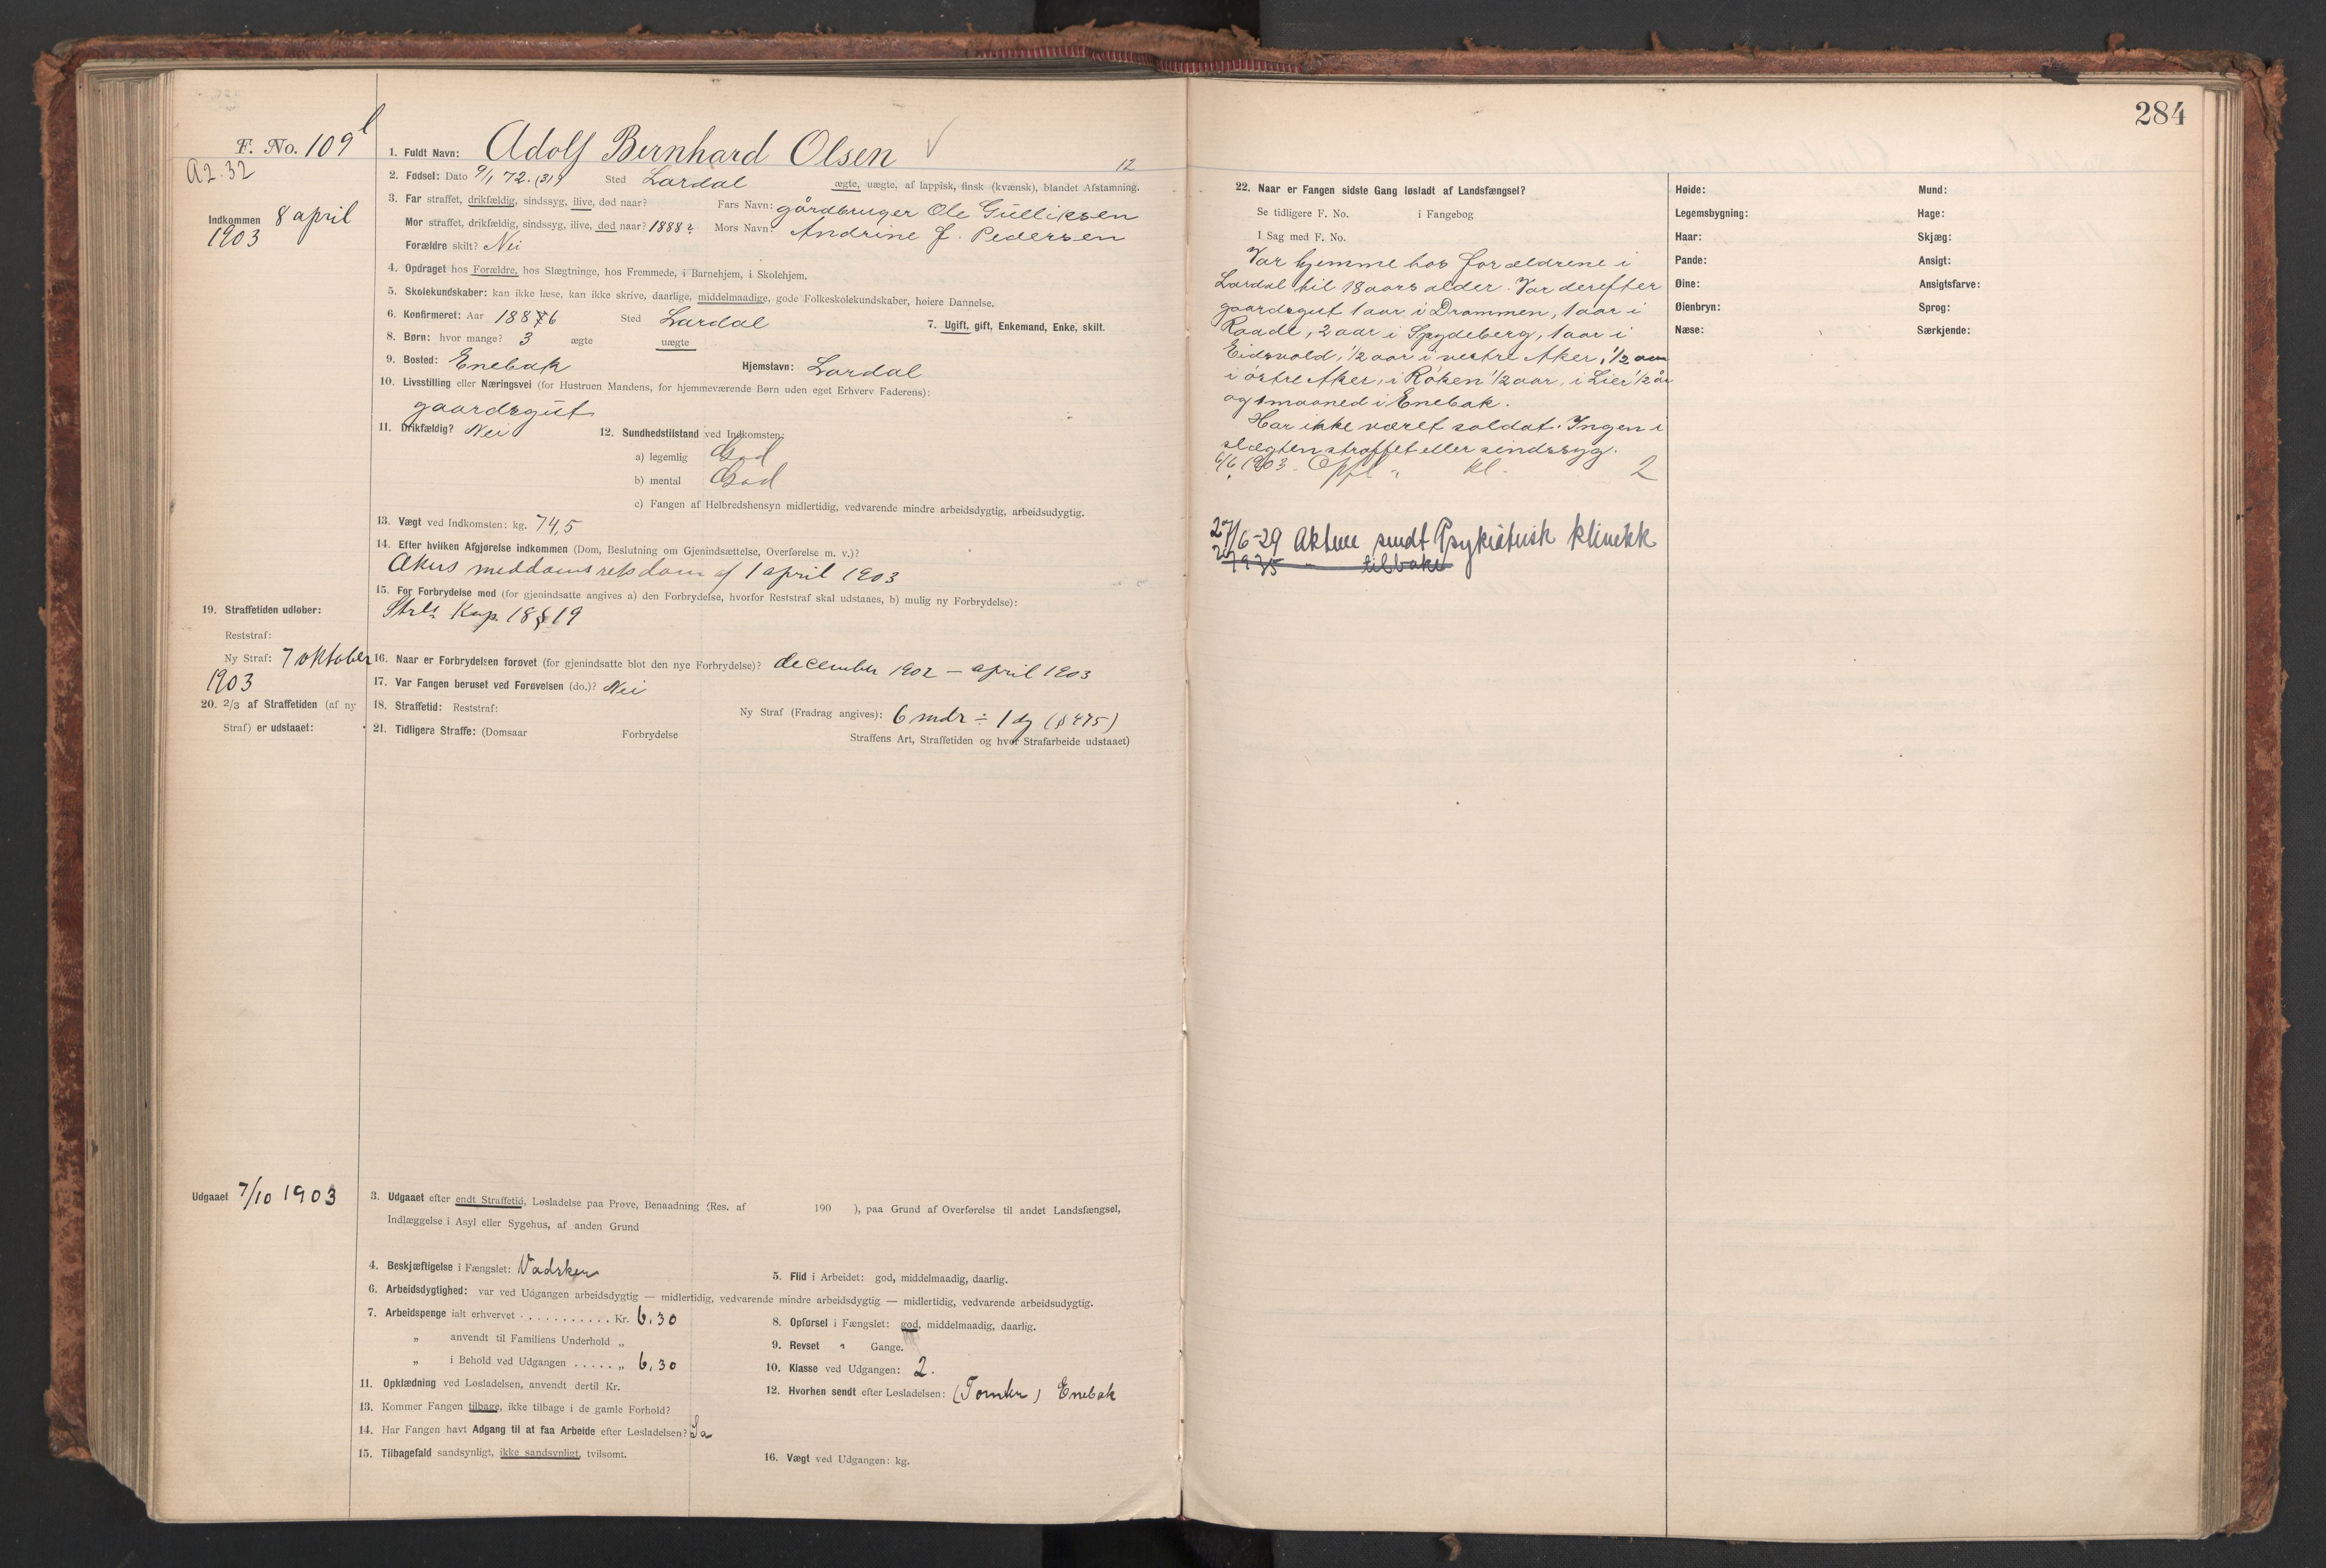 284
F. No. 109 l
A2.32
Indkommen 8 april
1903
1. Fuldt Navn: Adolf Bernhard Olsen
12
2. Fødsel: Dato 9/1 72. (31) Sted Lardal ægte, uægte, af lappisk, finsk (kvænsk), blandet Afstamning.
3. Far straffet, drikfældig, sindssyg, ilive, død naar? Fars Navn: gårdbruger Ole Gulliksen
Mor straffet, drikfældig, sindssyg, ilive, død naar? 1888? Mors Navn: Andrine J. Pedersen
Forældre skilt? Nei
4. Opdraget hos Forældre, hos Slægtninge, hos Fremmede, i Barnehjem, i Skolehjem.
5. Skolekundskaber: kan ikke læse, kan ikke skrive, daarlige, middelmaadige, gode Folkeskolekundskaber, høiere Dannelse.
6. Konfirmeret: Aar 1886 Sted Lardal 7. Ugift, gift, Enkemand, Enke, skilt.
8. Børn: hvor mange? 3 ægte uægte
9. Bosted: Enebak Hjemstavn: Lardal
10. Livsstilling eller Næringsvei (for Hustruen Mandens, for hjemmeværende Børn uden eget Erhverv Faderens):
gaardsgut
11. Drikfældig? Nei 12. Sundhedstilstand ved Indkomsten:
a) legemlig God
b) mental God
c) Fangen af Helbredshensyn midlertidig, vedvarende mindre arbeidsdygtig, arbeidsudygtig.
13. Vægt ved Indkomsten: kg. 74,5
14. Efter hvilken Afgjørelse indkommen (Dom, Beslutning om Gjenindsættelse, Overførelse m. v.)?
Akers meddomsretsdom af 1 april 1903
15. For Forbrydelse mod (for gjenindsatte angives a) den Forbrydelse, hvorfor Reststraf skal udstaaes, b) mulig ny Forbrydelse):
Strls Kap. 18 § 19
19. Straffetiden udløber:
Reststraf:
Ny Straf: 7 oktober
1903
16. Naar er Forbrydelsen forøvet (for gjenindsatte blot den nye Forbrydelse)? december 1902 — april 1903
17. Var Fangen beruset ved Forøvelsen (do.)? Nei
20. 2/3 af Straffetiden (af ny
Straf) er udstaaet:
18. Straffetid: Reststraf: Ny Straf (Fradrag angives): 6 mdr ÷ 1 dg (§ 475)
21. Tidligere Straffe: (Domsaar Forbrydelse Straffens Art, Straffetiden og hvor Strafarbeide udstaaet)
Udgaaet 7/10 1903
3. Udgaaet efter endt Straffetid, Løsladelse paa Prøve, Benaadning (Res. af 190 ), paa Grund af Overførelse til andet Landsfængsel,
Indlæggelse i Asyl eller Sygehus, af anden Grund
4. Beskjæftigelse i Fængslet: Vadsker
5. Flid i Arbeidet: god, middelmaadig, daarlig.
6. Arbeidsdygtighed: var ved Udgangen arbeidsdygtig — midlertidig, vedvarende mindre arbeidsdygtig — midlertidig, vedvarende arbeidsudygtig.
7. Arbeidspenge ialt erhvervet . . . . . . . . . . . Kr. 6.30
8. Opførsel i Fængslet: god, middelmaadig, daarlig.
" anvendt til Familiens Underhold "
9. Revset " Gange.
" i Behold ved Udgangen . . . . . " 6,30
10. Klasse ved Udgangen: 2.
11. Opklædning ved Løsladelsen, anvendt dertil Kr.
12. Hvorhen sendt efter Løsladelsen: (Tomter) Enebak
13. Kommer Fangen tilbage, ikke tilbage i de gamle Forhold?
14. Har Fangen havt Adgang til at faa Arbeide efter Løsladelsen? Ja
15. Tilbagefald sandsynligt, ikke sandsynligt, tvilsomt.
16. Vægt ved Udgangen: kg.
22. Naar er Fangen sidste Gang løsladt af Landsfængsel?
Se tidligere F. No. i Fangebog
I Sag med F. No.
Var hjemme hos forældrene i
Lardal til 18 aars alder. Var derefter
gaardsgut 1 aar i Drammen, 1 aar i
Raade, 2 aar i Spydeberg, 1 aar i
Eidsvold, 1/2 aar i vestre Aker, 1/2 aar
i østre Aker, i Røken 1/2 aar, i Lier 1/2 år
og 1 maaned i Enebak.
Har ikke været soldat. Ingen i
slægten straffet eller sindssyg.
6/6 1903. Opfl " kl. 2
27/6-29 Aktene sendt Psykiatrisk klinikk
" tilbake
Høide:
Legemsbygning:
Haar:
Pande:
Øine:
Øienbryn:
Næse:
Mund:
Hage:
Skjæg:
Ansigt:
Ansigtsfarve:
Sprog:
Særkjende: